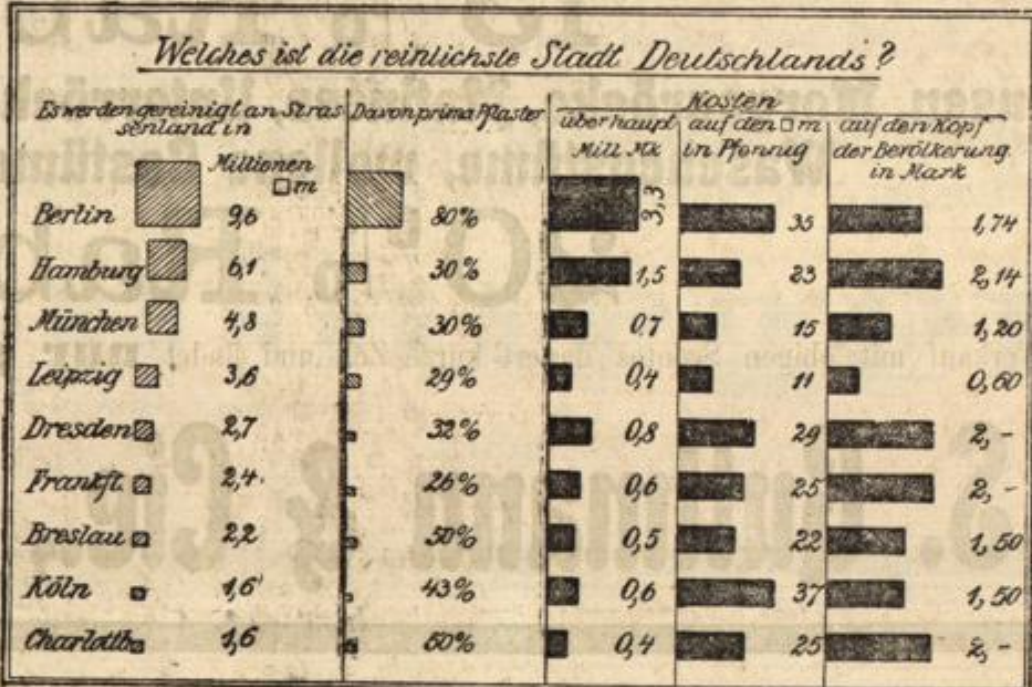 Welches ist die reinlichste Stadt Deutschlands?
Es werden gereinigt an Stras
senland in
Millionen
□m
Davon prima Pflaster
Kosten
überhaupt
Mill. Mk
auf den □m
in Pfennig
auf den Kopf
der Bevölkerung
in Mark
Berlin 9,6 80% 3,3 35 1,74
Hamburg 6,1 30% 1,5 23 2,14
München 4,8 30% 0,7 15 1,20
Leipzig 3,6 29% 0,4 11 0,60
Dresden 2,7 32% 0,8 29 2,-
Frankft. 2,4 26% 0,6 25 2,-
Breslau 2,2 50% 0,5 22 1,50
Köln 1,6 43% 0,6 37 1,50
Charlottb. 1,6 60% 0,4 25 2,-